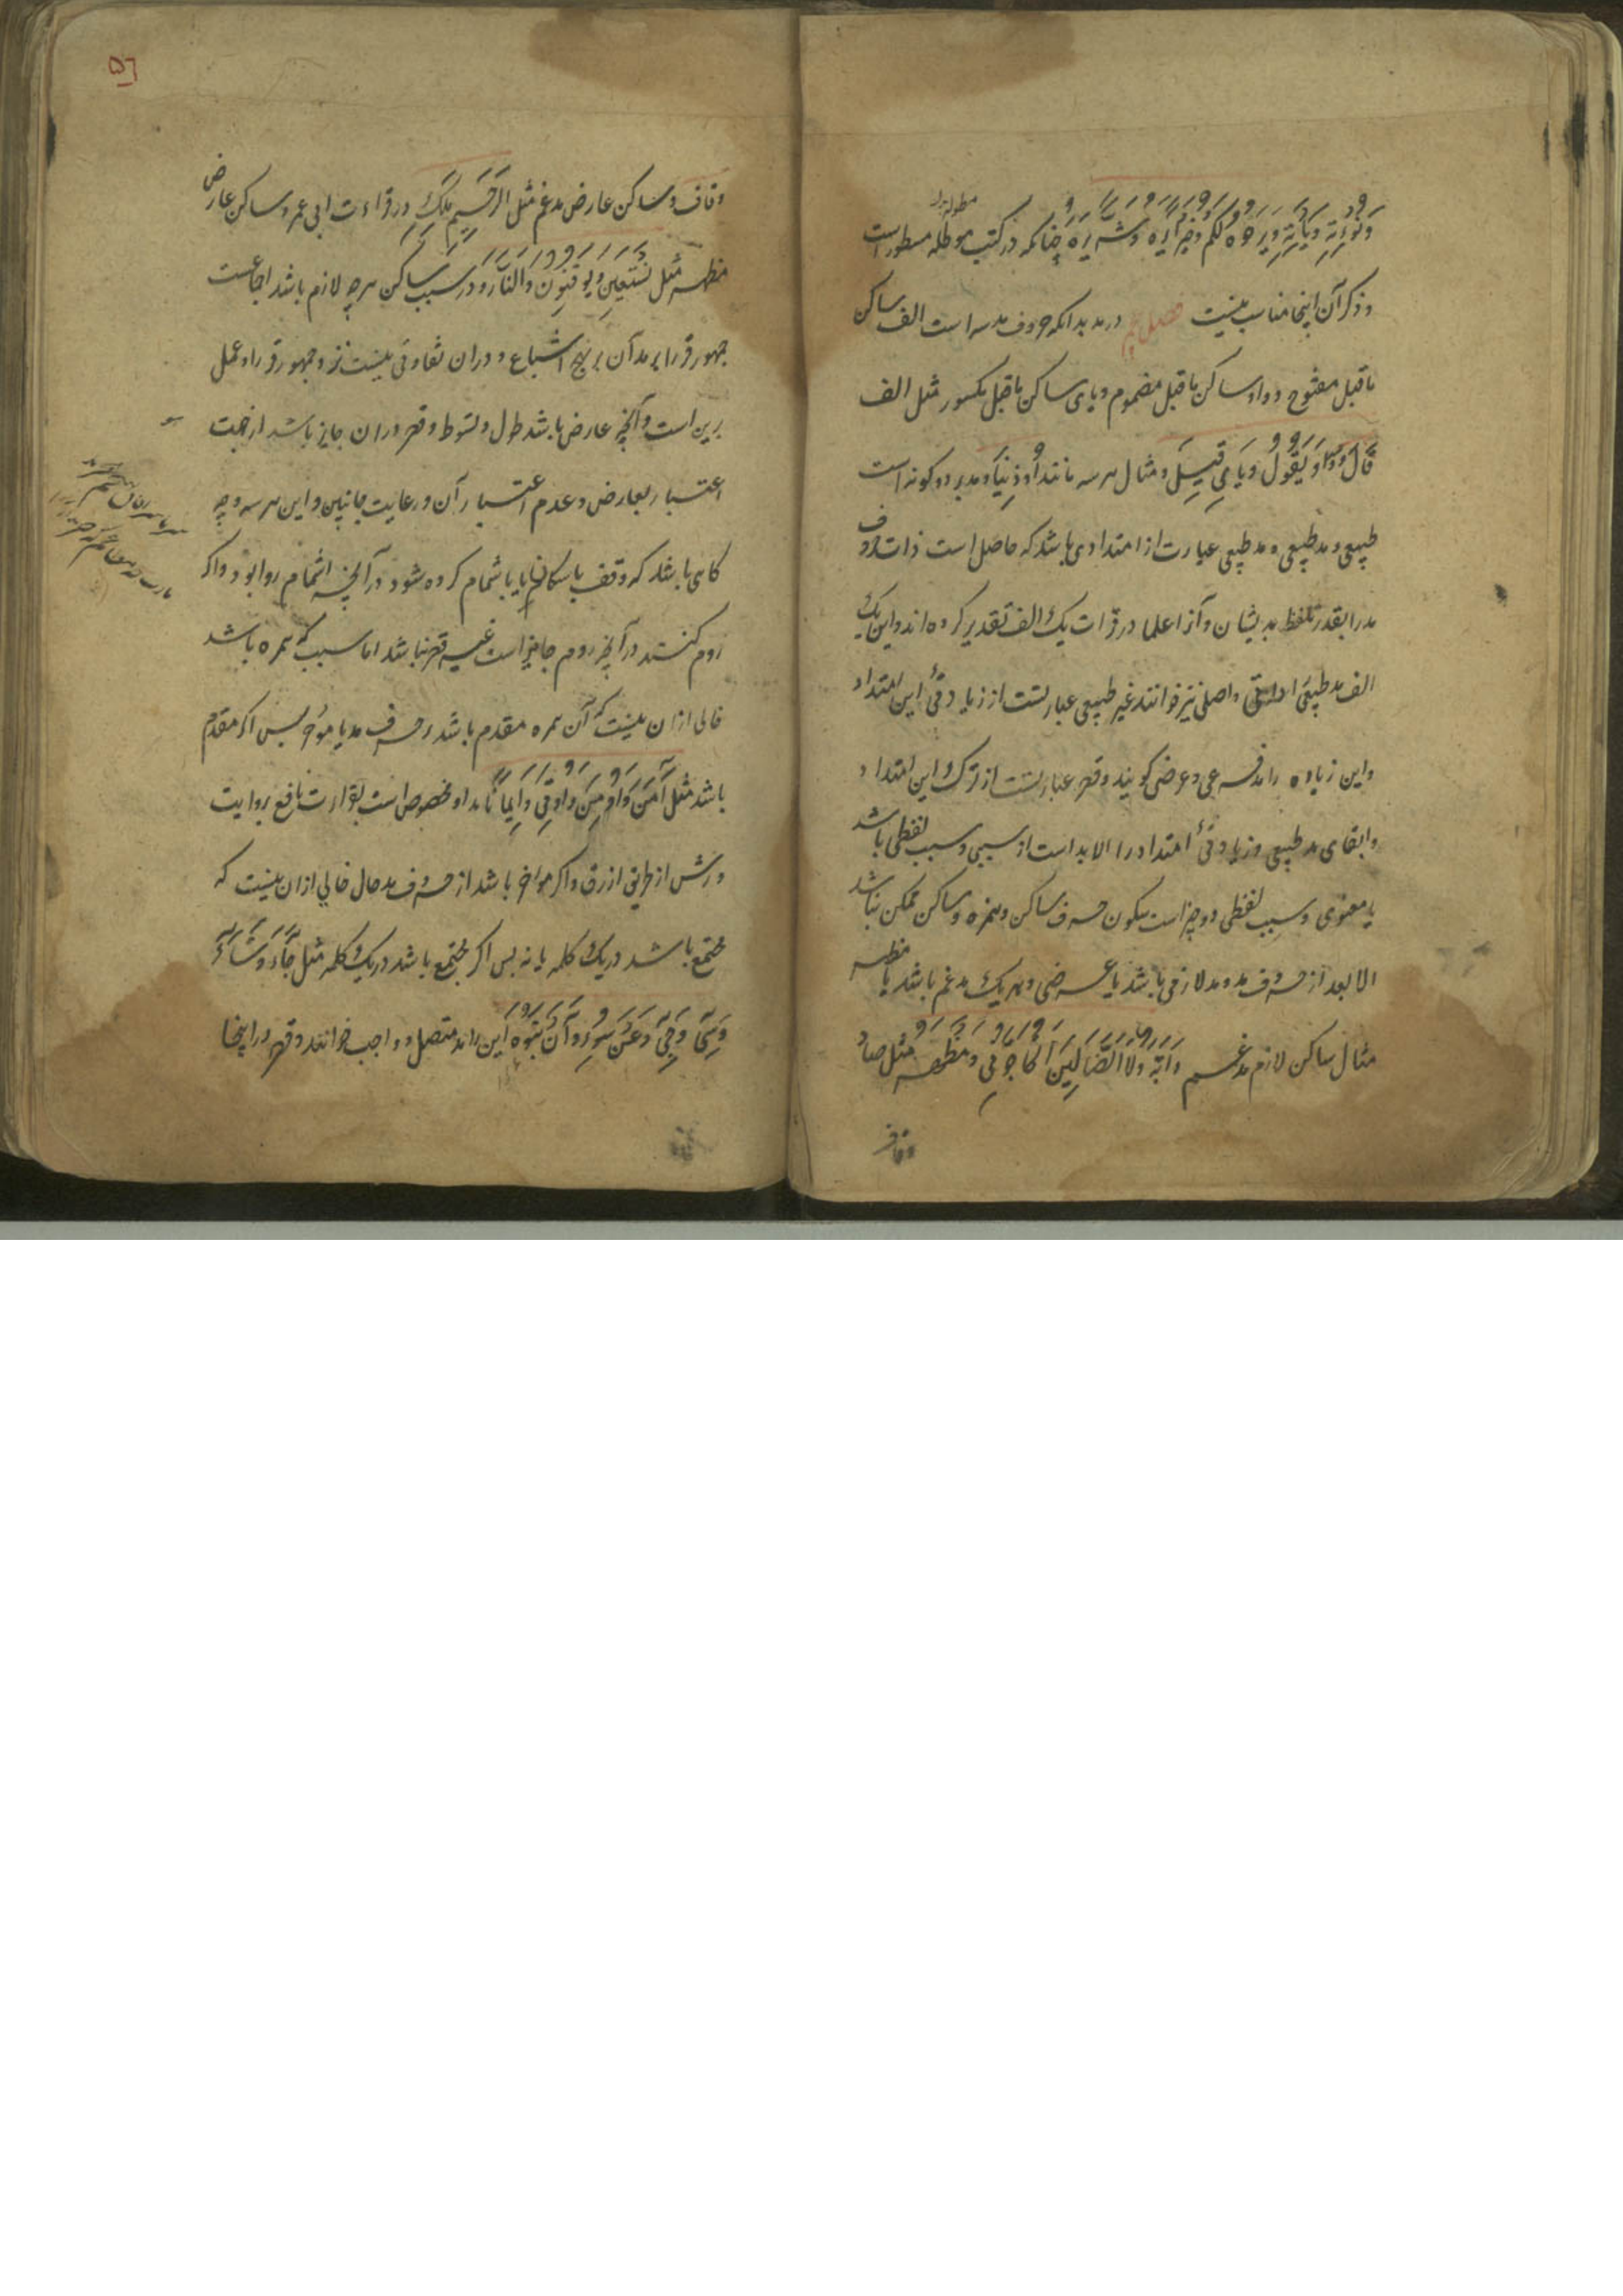 وَنُؤْتِهِ وَیَأْتِهِ وَیَرَهُ لکم وخیراً یره وشراً یره چنانکه در کتب مطوله مسطور است
وذکر آن اینجا مناسب نیست فصل در مد بدانکه حروف مد سه است الف ساکن
ماقبل مفتوح وواو ساکن ماقبل مضموم ویای ساکن ماقبل مکسور مثل الف
قَالَ وواو یَقُولُ ویای قِیلَ ومثال هر سه مانند اُوذِینَا ومد بر دو کونه است
طبیعی وغیر طبیعی ومد طبیعی عبارت از امتدادی باشد که حاصل است ذات حروف
مد را بقدر تلفظ بدیشان وآنرا علما در قرات یک الف تقدیر کرده اند واین یک
الف مد طبیعی ا واصلی نیز خوانند غیر طبیعی عبارتست از زیادتئ این امتداد
واین زیاده را مد فرعی وعرضی کویند وقصر عبارتست از ترک این امتداد
وابقای مد طبیعی وزیادتئ امتداد را لابد است از سببی وسبب لفظی باشد
یا معنوی وسبب لفظی دو چیز است سکون حرف ساکن وهمزه وساکن ممکن نباشد
الا بعد از حروف مد ومد لازمی باشد یا عرضی وهر یک مدغم باشد یا مظهر
مثال ساکن لازم مدغم دَآبَّةٍ وَلَا الضَّآلِّینَ اَتُحَآجُّوٓنِّی ومظهر مثل صاد
وقاف
۵٦
وقاف وساکن عارض مدغم مثل الرَّحِیمِ مَلِكِ در قراءت ابی عمرو وساکن عارض
مظهر مثل نَسْتَعِینُ ویُوقِنُونَ والنَّارِ ودر سبب ساکن هرچه لازم باشد اجماعست
جمهور قرا بر مد آن بر نهج اشباع ودران تفاوتی نیست نزد جمهور قرا وعمل
برین است وآنچه عارض باشد طول وتوسط وقصر دران جایز باشد از جهت
اعتبار بعارض وعدم اعتبار آن ورعایت جانبین واین هر سه وجه
کاهی باشد که وقف باسکان یا باشمام کرده شود در آنچه اشمام روا بود واکر
روم کنند در آنچه روم جایز است غیر قصر نباشد اما سببی که همزه باشد
خالی ازان نیست که آن همزه مقدم باشد بر حرف مد یا مؤخر پس اکر مقدم
باشد مثل آمَنَ وَاُوتِیَ وَاِیمَاناً مد او مخصوص است بقرارت نافع بروایت
ورش از طریق ازرق واکر مواخر باشد از حروف مد حال خالی ازان نیست که
مجتمع باشد در یک کلمه یا نه پس اکر مجتمع باشد در یک کلمه مثل جَآءَ وَشَآءَ
وَسِیٓءَ وَجِیٓءَ وَعَنْ سُوٓءٍ وَاَنْ تَبُوٓءَ این را مد متصل وواجب خوانند وقصر در اینجا